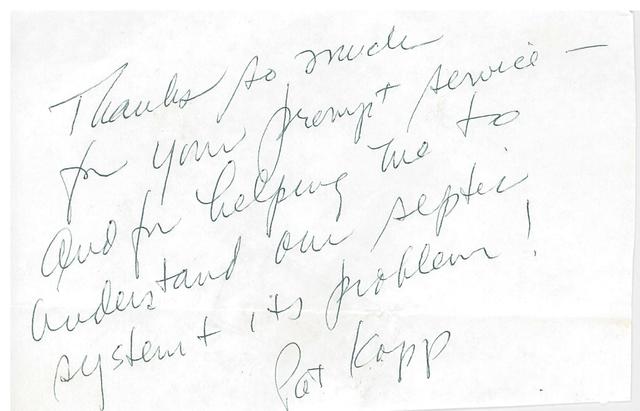 Thanks so much
for your prompt service —
And for helping me to
understand our septic
system + its problem!
Pat Kopp